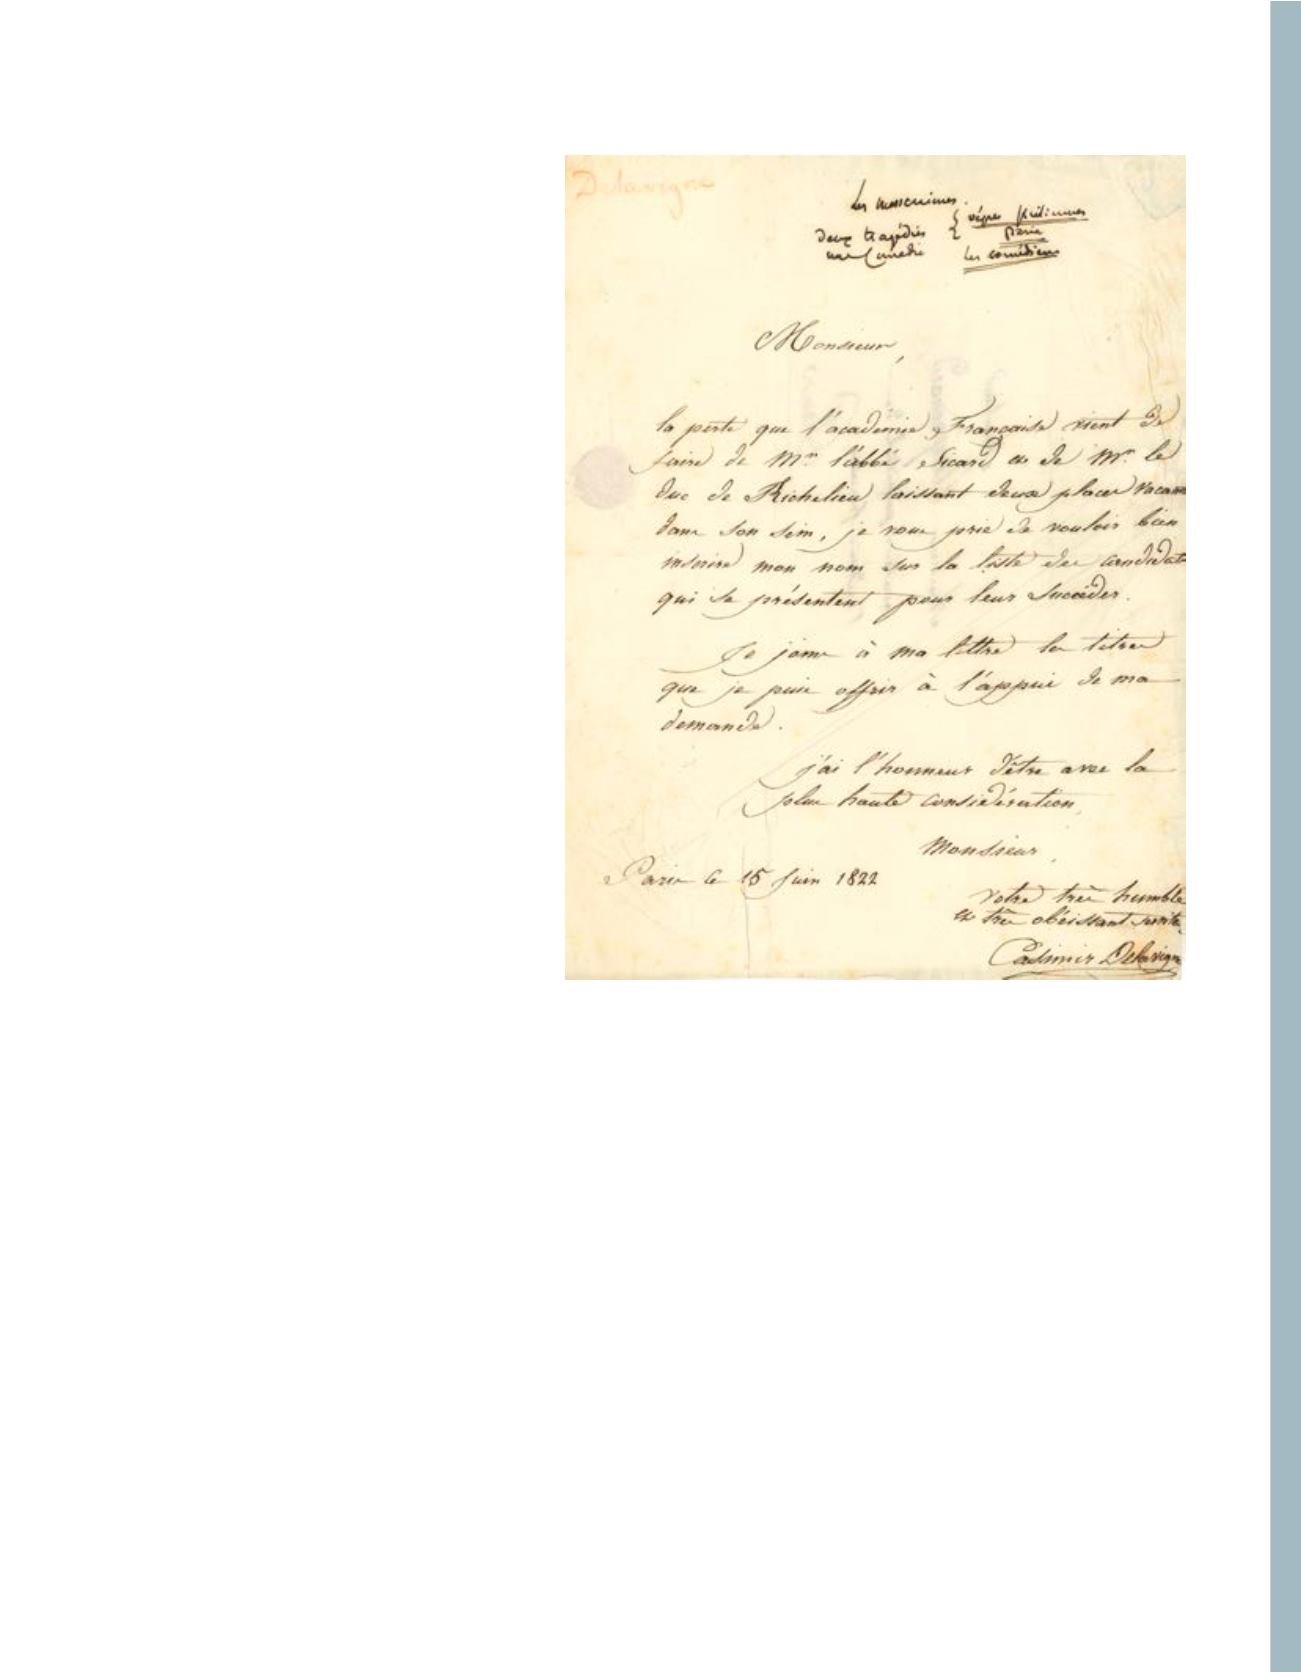 Delavigne
Les messeniennes.
deux tragédies { vêpres siciliennes
paria
une Comédie les comédiens
Monsieur,
la perte que l'académie Française vient de
faire de Mr. l'abbé Sicard et de Mr. le
duc de Richelieu laissant deux places vacan
dans son sein, je vous prie de vouloir bien
inscrire mon nom sur la liste des candidats
qui se présentent pour leur succéder.
Je joins à ma lettre les titres
que je puis offrir à l'appui de ma
demande.
j'ai l'honneur d'être avec la
plus haute considération,
Monsieur,
Paris le 15 Juin 1822
votre très humble
et très obéissant servite.
Casimir Delavigne